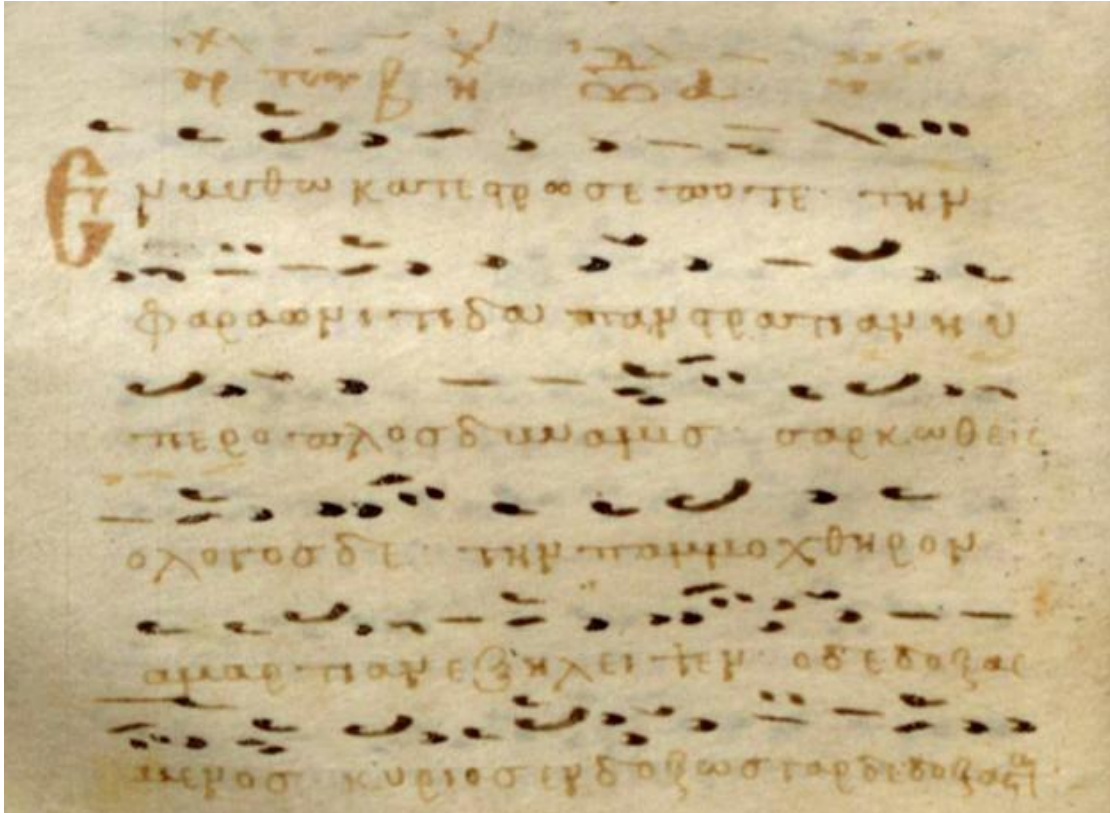 Εν βυθω κατεστρωσε ποτε· την
φαραωνιτιδα πανστρατιαν η υ
περοπλοσ δυναμισ· σαρκωθεις
ο λογοσ δε· την παμμοχθηρον
αμαρτιαν εξηλειψεν· ο δεδοξασ
μενοσ κυριοσ ενδοξωσ γαρ δεδοξασται